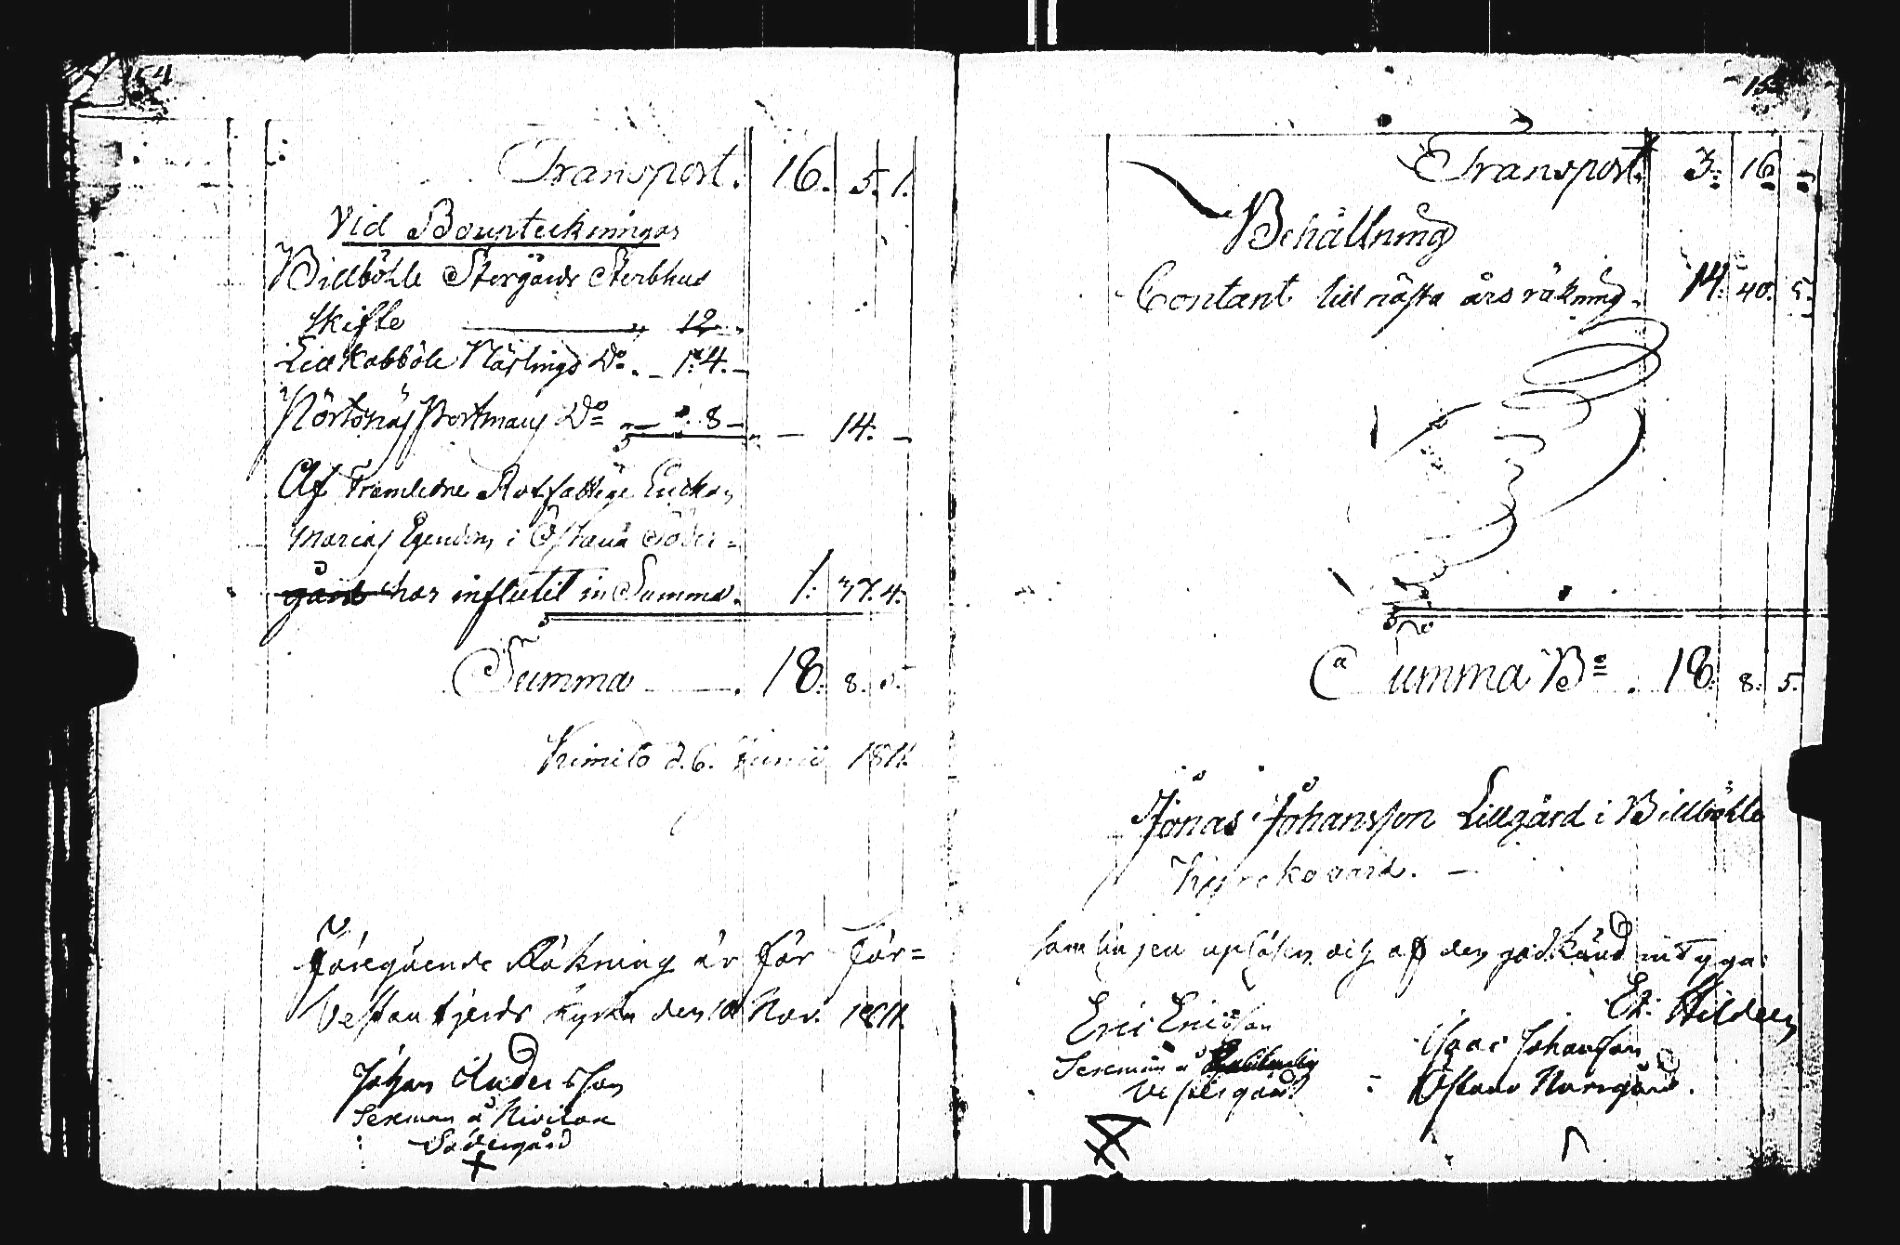 154
Transport. 16. 5. 1.
Vid Bouptekningar
Billböhle Storgårds Sterbhus
Skifte 12
Lillkobböle Närlings Do. 1: 4.
Nörtonäs Dº 8 14.
Af Framledne Rotfattige Enckan
Marias Egendom i Östanå Söder=
gård har influtit in Summa. 1: 37. 4.
Summa 18. 8. 5.
Kimito d. 6. Junii 1811.
Föregående Räkning är för För=
Vestanfjerds kyrka den 10 Nov. 1811.
Johan Andersson
Sexman å
Södergård
155
Transport. 3. 16
Behållning
Contant till nästa års räkning. 14. 40. 5.
Summa Bº. 18. 8. 5.
Jonas Johansson Lillgård i Billböhle
Kyrckovärd.
samlingen upläsen och af den godkänd intygar
Eric Ericsson
Er. Hildeen
Isaac Johansson
Sexman å
Vestergård
Östanå Norrgård.